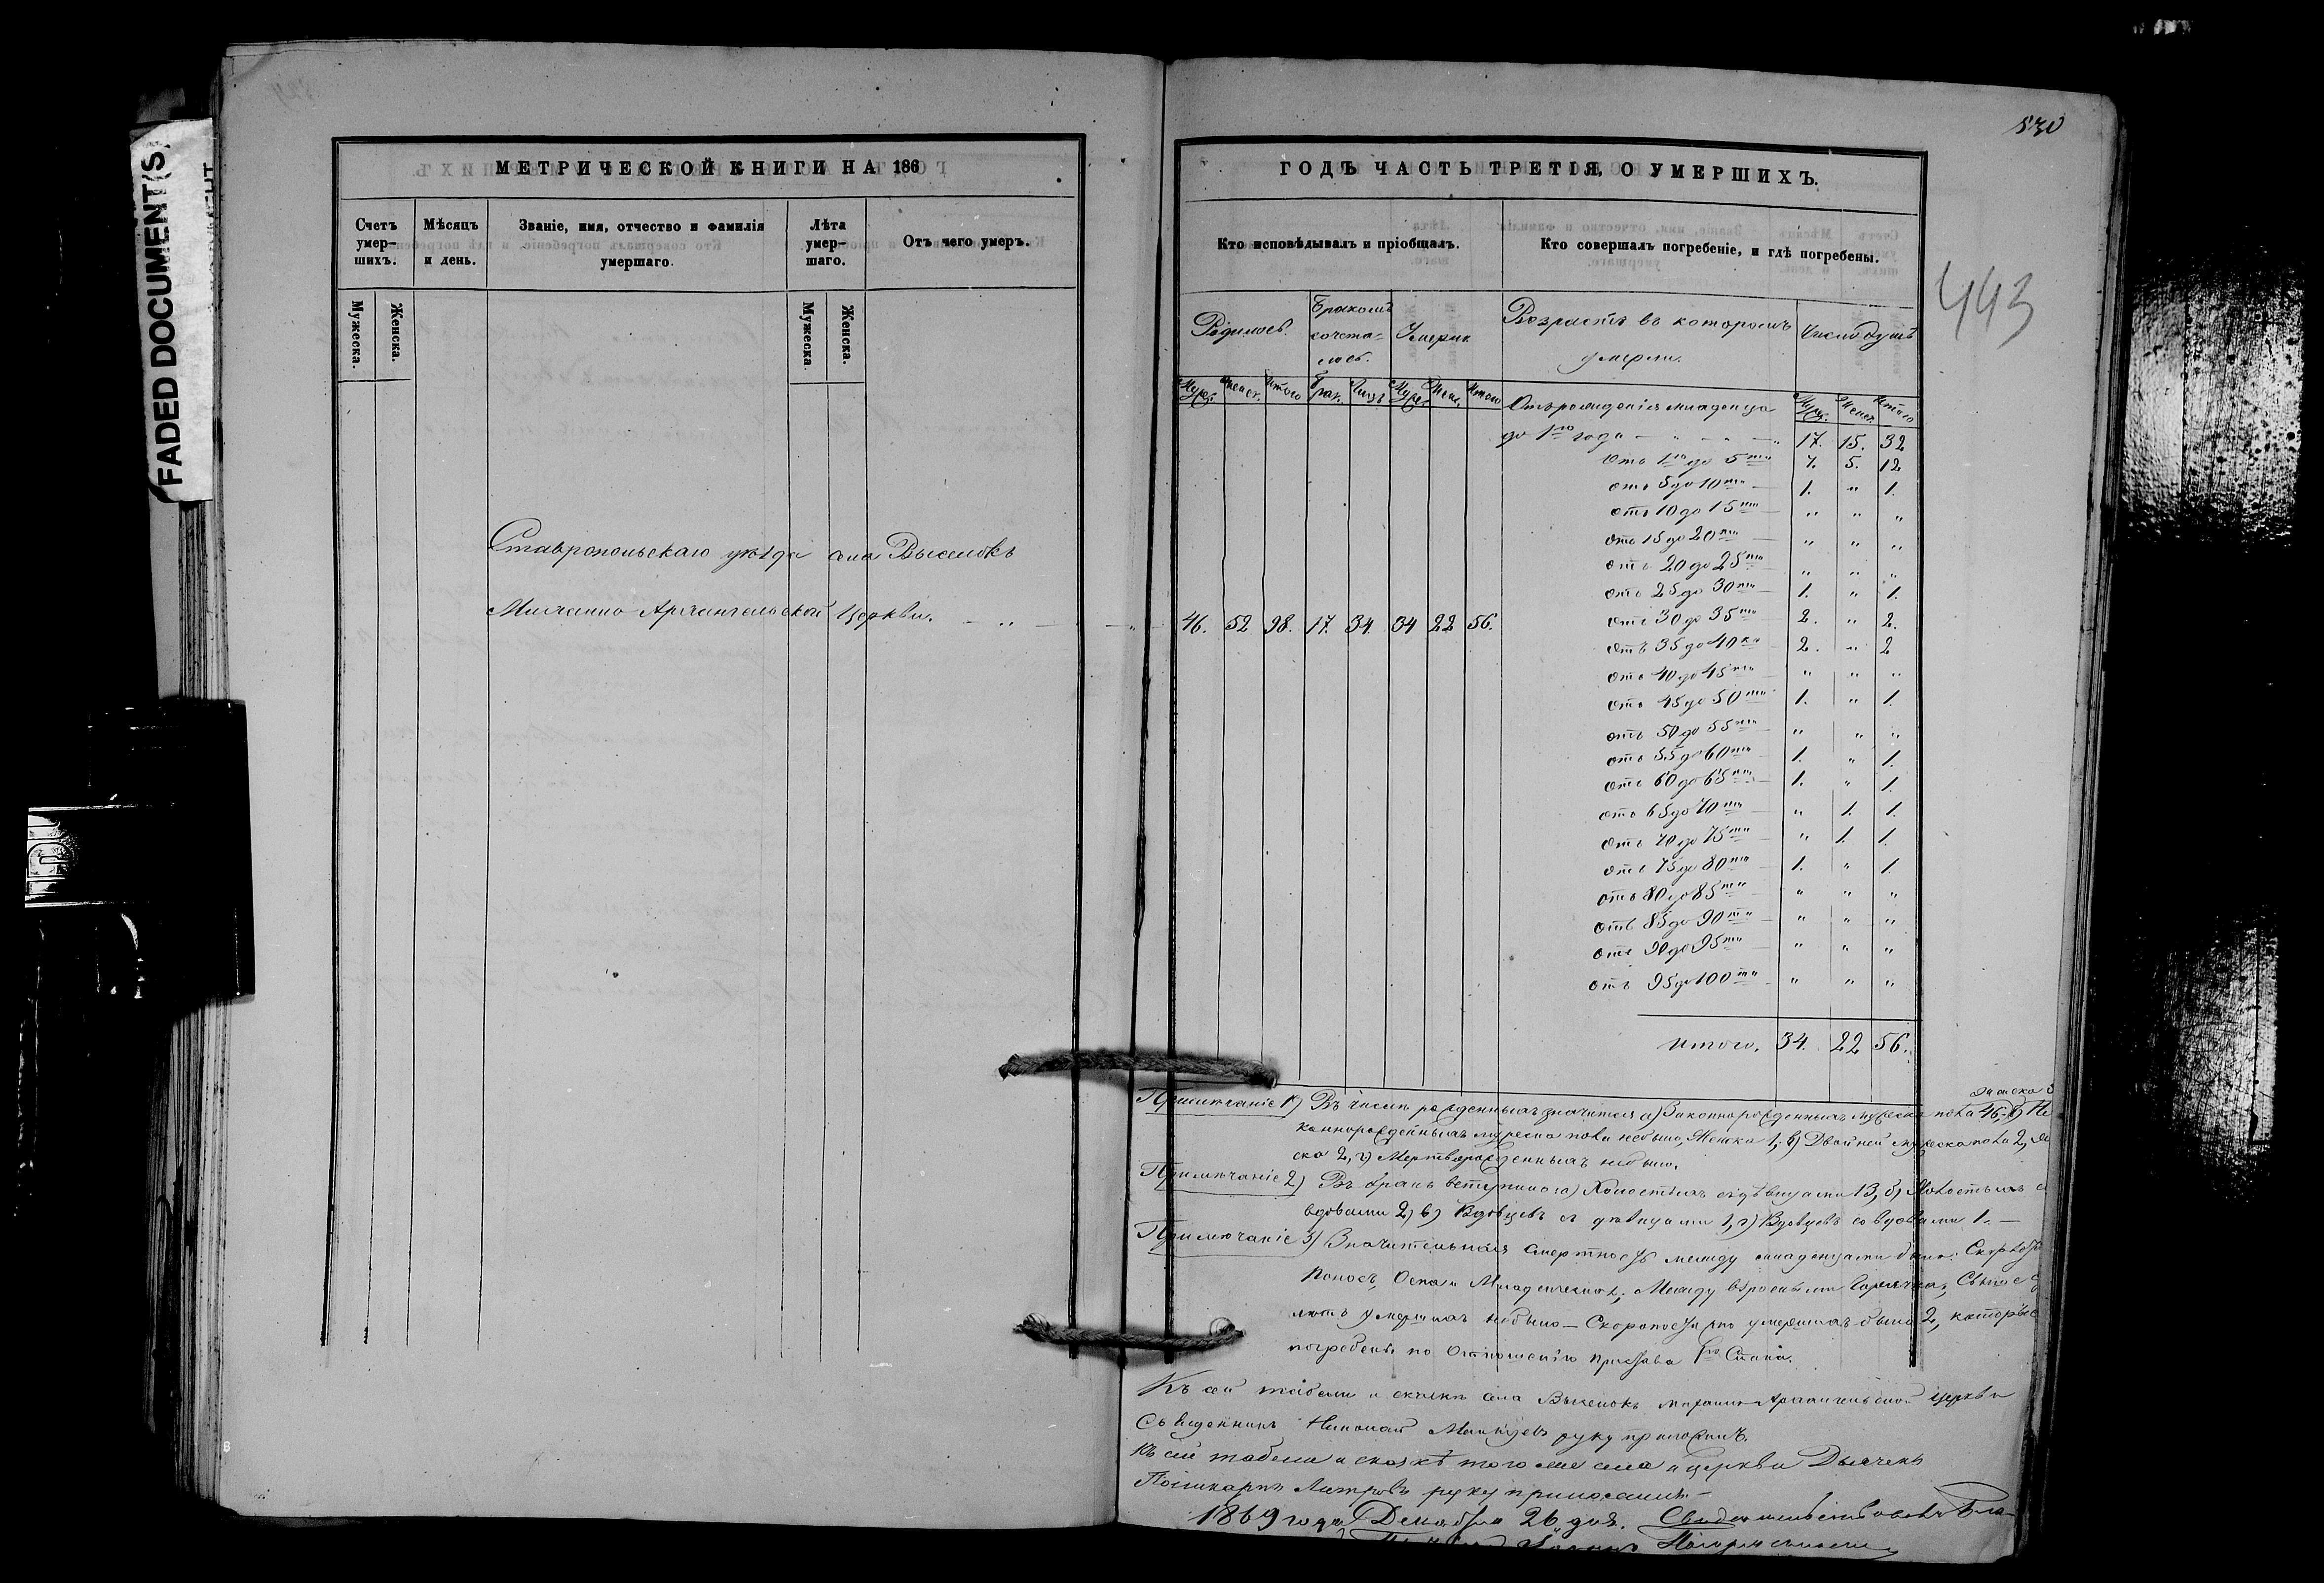 FADED DOCUMENT(S)
МЕТРИЧЕСКОЙ КНИГИ НА 186
Счетъ умер-шихъ.
Мѣсяцъ и день.
Званіе, имя, отчество и фамилія умершаго.
Лѣта умер-шаго.
Отъ чего умеръ.
Мужеска.
Женска.
Мужеска.
Женска.
Ставропольскаго уѣзда села Выселокъ
Михаило Архангельской Церкви. — „ —
830
443
ГОДЪ ЧАСТЬ ТРЕТІЯ, О УМЕРШИХЪ.
Кто исповѣдывалъ и пріобщалъ.
Кто совершалъ погребеніе, и гдѣ погребены.
Родилось
Бракомъ сочета-лось.
Умерли
Возрастъ въ которомъ умерли.
Число душъ
Муж. Женск. Итого Брак. Лицъ Муж. Жен. Итого
46. 52 98. 17. 34. 34 22 56.
Муж. Женск. Итого
Отъ рожденія младенца
до 1го года — „ — 17. 15. 32
Отъ 1го до 5ти 7. 5. 12
отъ 5 до 10ти — 1. „ 1.
отъ 10 до 15ти — „ „ „
отъ 15 до 20ти — „ „ „
отъ 20 до 25ти „ „ „
отъ 25 до 30ти — 1. „ 1.
отъ 30 до 35ти — 2. „ 2.
отъ 35 до 40ка — 2. „ 2
отъ 40 до 45ти „ „ „
отъ 45 до 50ти 1. „ 1.
отъ 50 до 55ти — „ „ „
отъ 55 до 60ти — 1. „ 1.
отъ 60 до 65ти — 1. „ 1.
отъ 65 до 70ти — „ 1. 1.
отъ 70 до 75ти — „ 1. 1.
отъ 75 до 80ти — 1. „ 1.
отъ 80 до 85ти „ „ „
отъ 85 до 90ти — „ „ „
отъ 90 до 95ти — „ „ „
отъ 95 до 100ти — „ „ „
итого. 34. 22 56.
женска 5
Примѣчаніе 1) Въ числѣ рожденныхъ значится а) Законнорожденныхъ мужеска пола 46, б) Не
каннорожденныхъ мужеска пола небыло, Женска 1, в) Двойней мужеска пола 2, Же
ска 2, г) Мертворожденныхъ небыло.
Примѣчаніе 2) Въ бракъ вступило а) Холостыхъ съ дѣвицами 13, б) Холостыхъ с
вдовами 2, в) Вдовцевъ съ дѣвицами 1, г) Вдовцевъ со вдовами 1. —
Примѣчаніе 3) Значительная смертность между младенцами была:
Поносъ, Оспа и Младенческая; Между взрослыми Горячка,
лѣтъ умершихъ небыло — Скоропостижно умершихъ было 2, которые
погребены по Отношенію Пристава 1го Стана.
Къ сей табели и села Выселокъ Михаило-Архангельской церкви
Священникъ Николай руку приложилъ.
Къ сей табели и того же села и церкви Дьячекъ
Поликарпъ руку приложилъ. —
1869 года Декабря 26 дня. Свидетельствовалъ Бла-